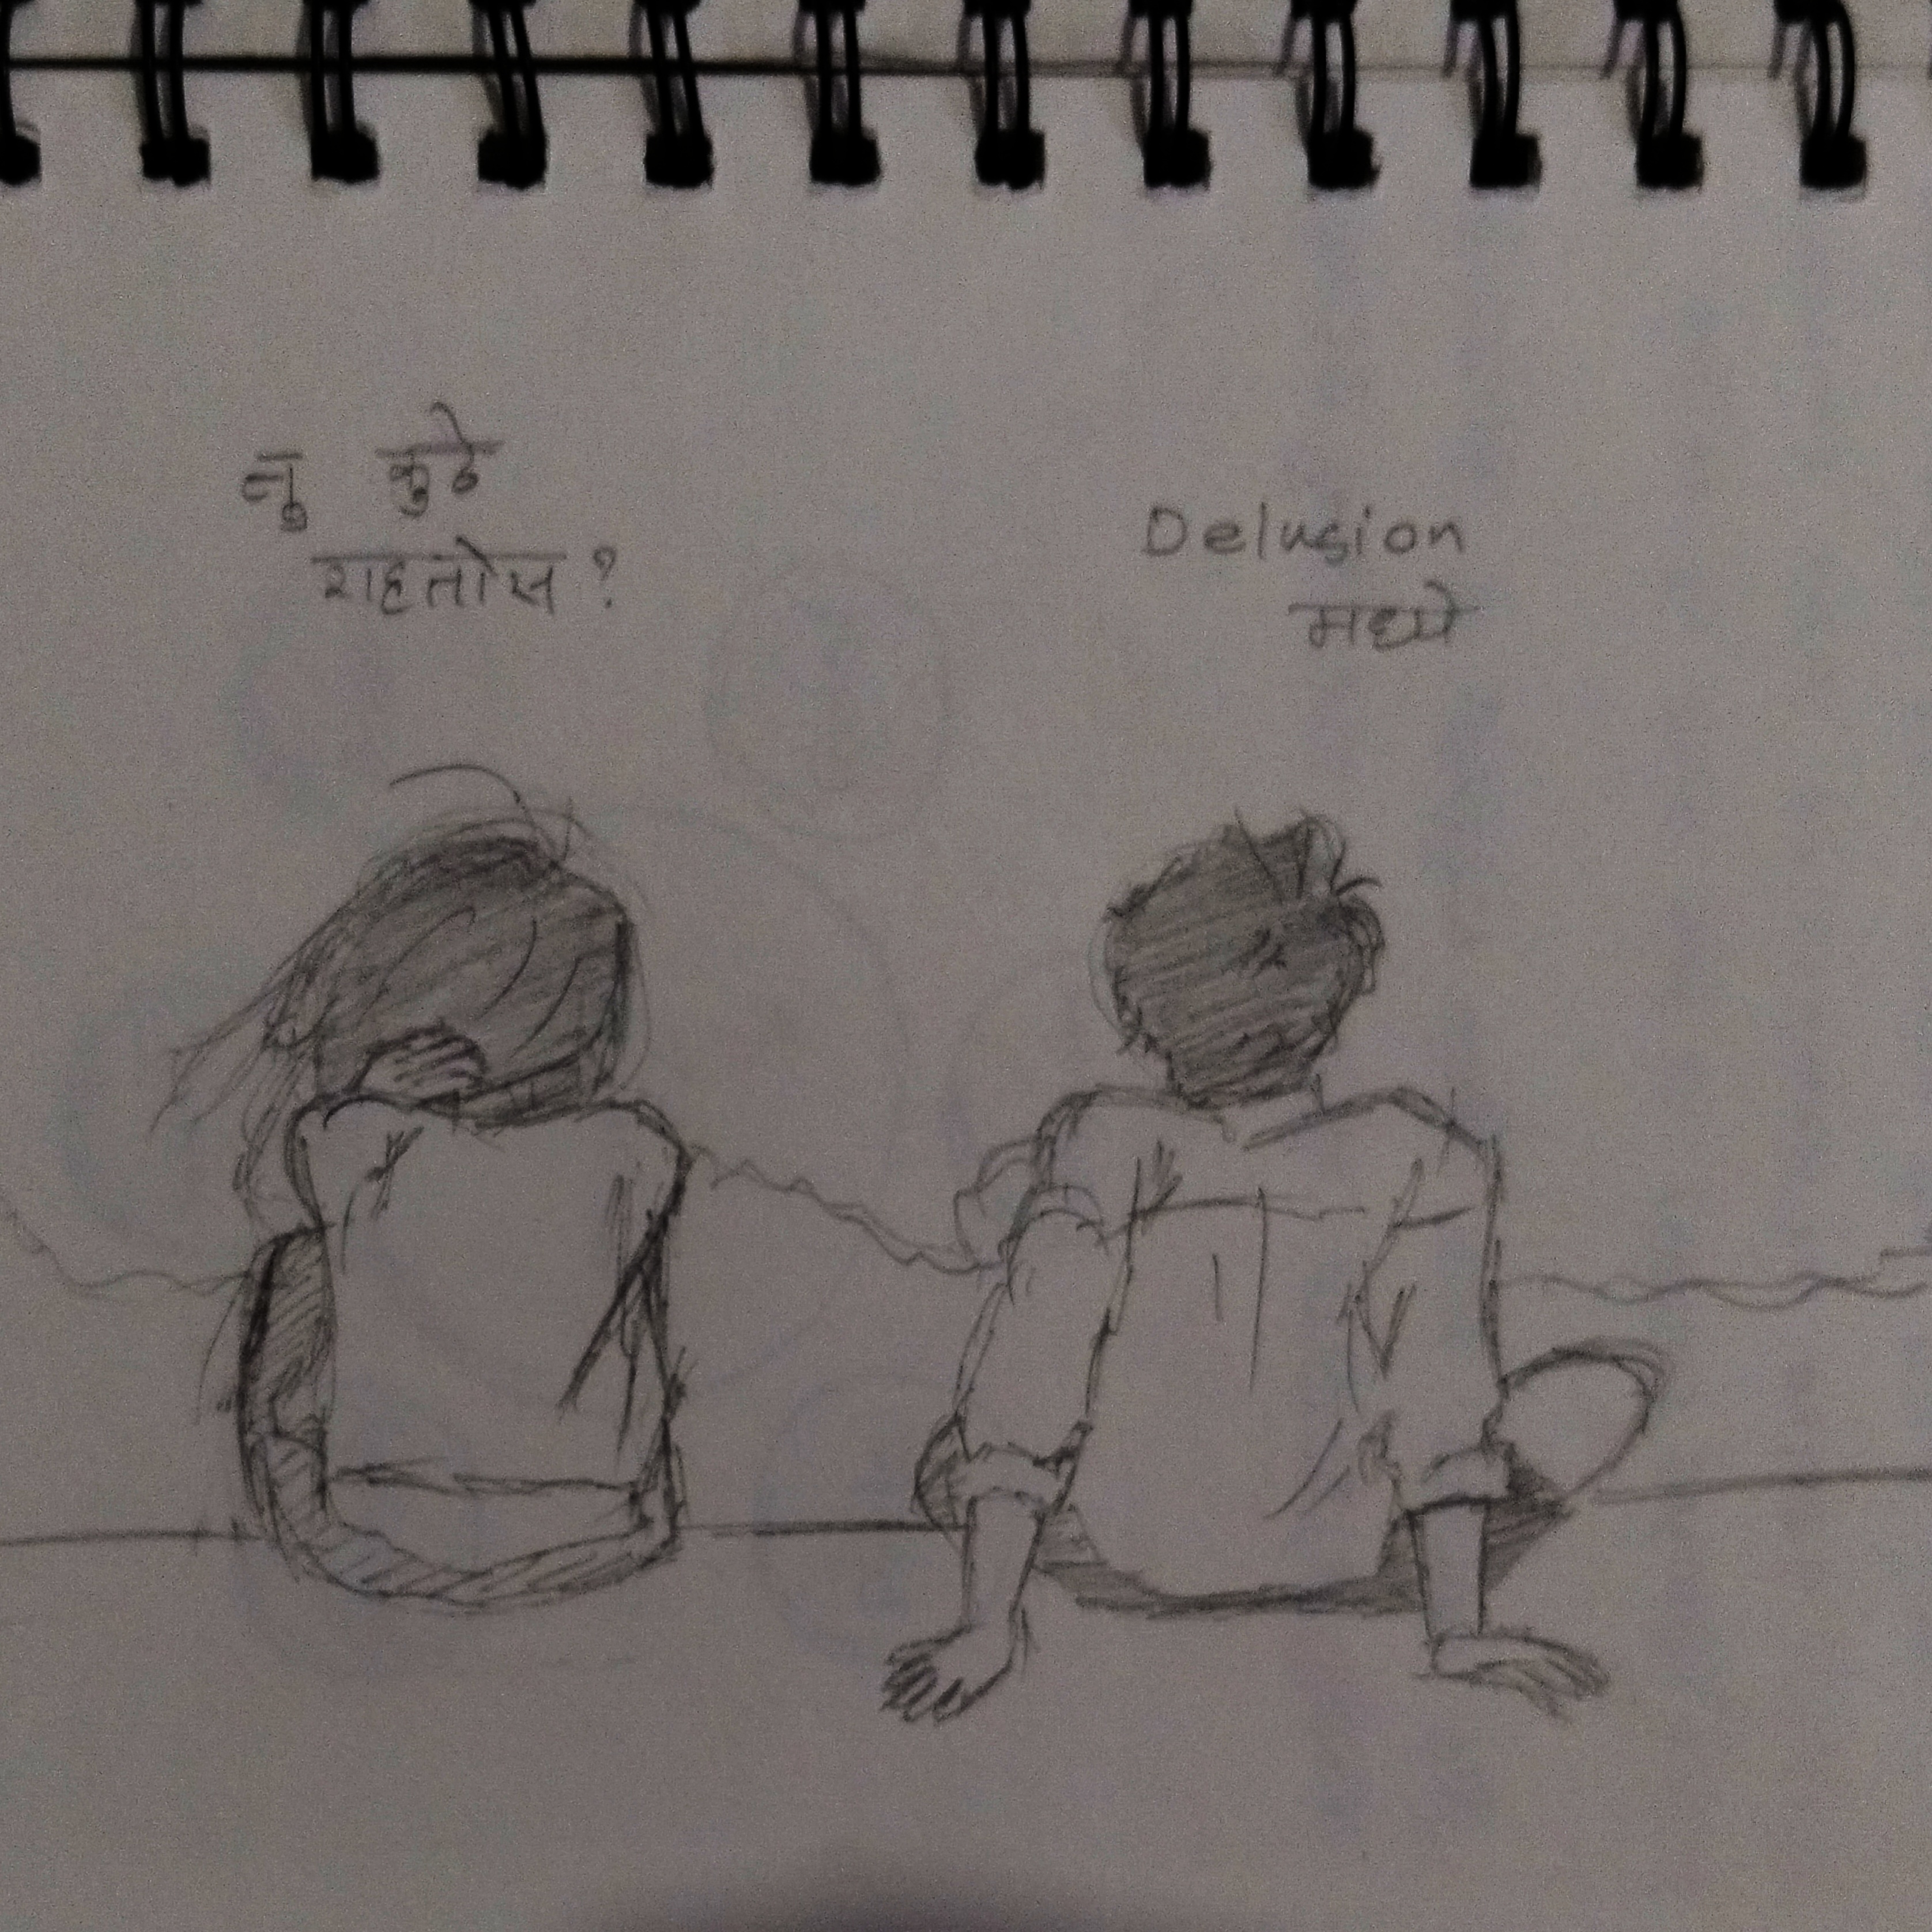 तू कुठे
राहतोस ?
Delusion
मध्ये